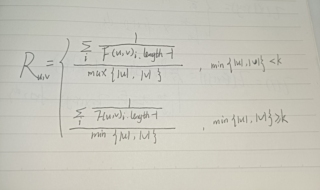 R_{u,v} = { \frac{\sum_i \frac{1}{F(u,v)_i.length-1}}{max{|u|,|v|}} , min{|u|,|v|}<k
\frac{\sum_i \frac{1}{F(u,v)_i.length-1}}{min{|u|,|v|}} , min{|u|,|v|}≥k